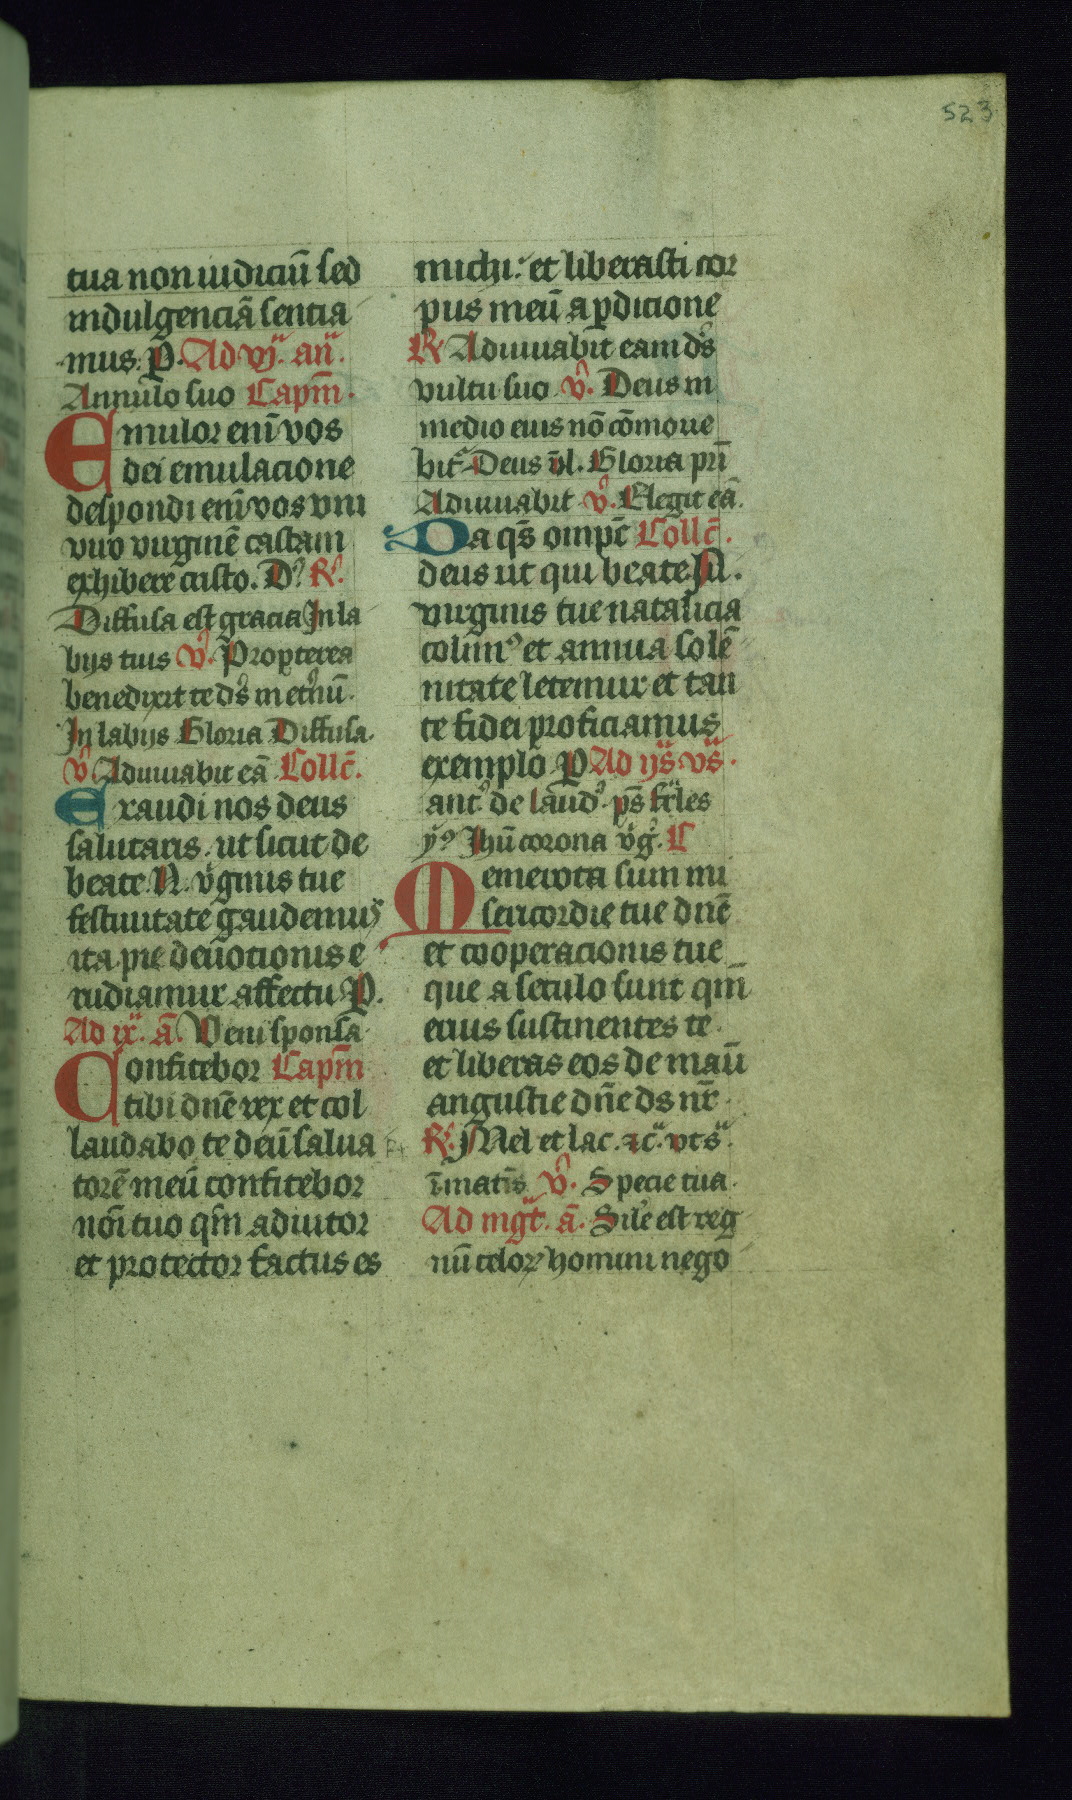 523
tua non iudiciū sed
indulgenciā sentia
mus. P. Ad vj. an̄.
Annulo suo Capm̄.
Emulor enī vos
dei emulacione
despondi enī vos vni
viro virginē castam
exhibere cristo. D. R.
Diffusa est gracia In la
bijs tuis v. Propterea
benedixit te ds in etnū.
In labijs Gloria Diffusa.
v Adiuuabit eā Collc̄.
Exaudi nos deus
salutaris. ut sicut de
beate N. v̄ginis tue
festiuitate gaudemus
ita pie deuotionis e
rudiamur affectu P.
Ad ix. ā. Veni sponsa
Confitebor Capm̄
tibi dn̄e rex et col
laudabo te deū salua
torē meū confitebor
nōi tuo qm̄ adiutor
et protector factus es
michi: et liberasti cor
pus meū a pdicione
R Adiuuabit eam ds
vultu suo v. Deus in
medio eius nō cōmoue
bit Deus v̄l. Gloria pri
Adiuuabit v. Elegit eā.
Da qs̄ omp̄c Collc̄.
deus ut qui beate N.
virginis tue natalicia
colim9 et annua solē
nitate letemur et tan
te fidei proficiamus
exemplo P Ad ijs vs.
ant de laud ps̄ feles
y9 Jhū corona v̄g. C
Memerota sum mi
sericordie tue dn̄e
et cooperacionis tue
que a seculo sunt qm̄
eruis sustinentes te
et liberas eos de manū
angustie dn̄e ds nr̄
R. Mel et lac. ⁊c. vt s.
ī matīs v. Specie tua.
Ad mgt. ā. Sile est reg
nū celoꝝ homini nego